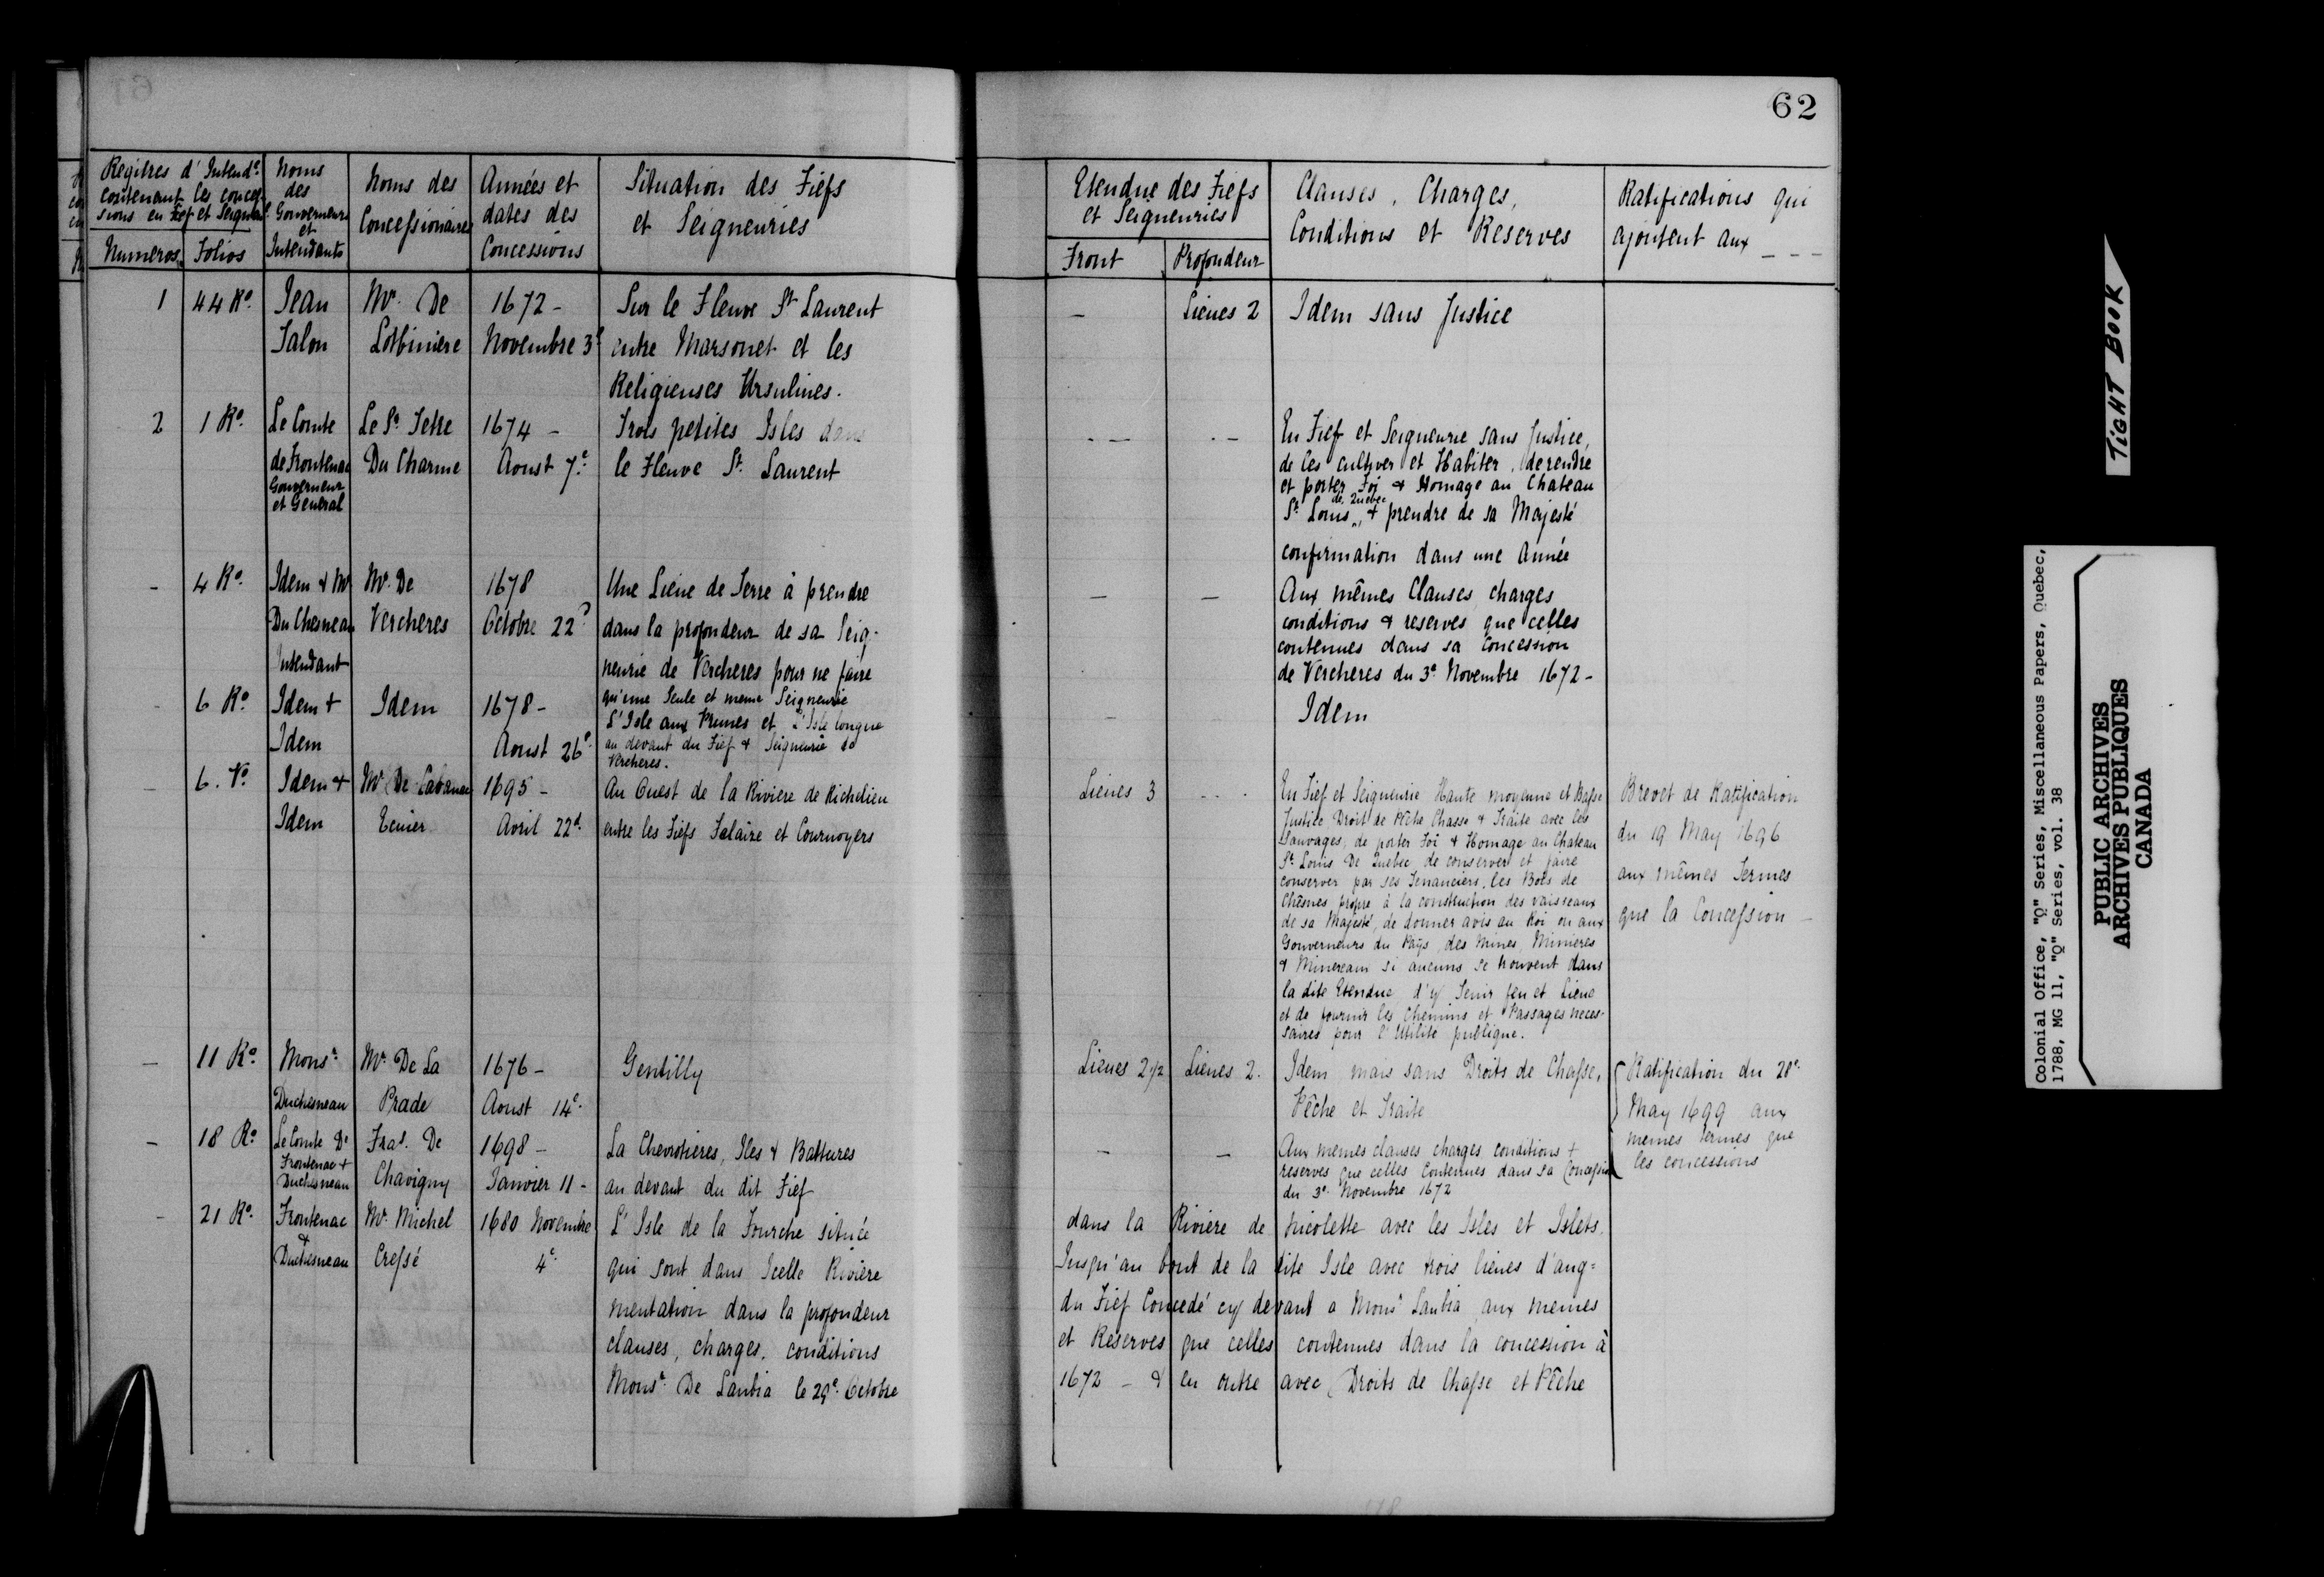 62
Regitres d'Intend.ce
contenant les conces-
sions en Fief et Seigneu.
Numeros
Folios
Noms
des
Gouverneurs
et
Intendants
Noms des
Concessionaires
Années et
dates des
Concessions
Situation des Fiefs
et Seigneuries
Etendue des Fiefs
et Seigneuries
Front
Profondeur
Clauses, Charges,
Conditions et Reserves
Ratifications qui
ajoutent aux ---
1
44 Ro.
Jean
Talon
Mr. De
Lotbiniere
1672 -
Novembre 3e
Sur le Fleuve St Laurent
entre Marsonet et les
Religieuses Ursulines.
-
Lieues 2
Idem sans Justice
2
1 Ro.
Le Comte
de Frontenac
Gouverneur
et Général
Le Sr. Tetre
Du Charme
1674 -
Aoust 7e.
Trois petites Isles dans
le Fleuve St. Laurent
En Fief et Seigneurie sans Justice,
de les cultiver et Habiter, de rendre
et porter Foi & Homage au Chateau
St. Louis de Quebec, & prendre de sa Majesté
confirmation dans une Année
-
4 Ro.
Idem & Mr
Du Chesneau
Intendant
Mr. De
Vercheres
1678
Octobre 22e
Une Lieue de Terre à prendre
dans la profondeur de sa Seig-
neurie de Vercheres pour ne faire
qu'une Seule et meme Seigneurie
-
-
Aux mêmes Clauses, charges
conditions & reserves que celles
contenues dans sa Concession
de Vercheres du 3e. Novembre 1672 -
-
6 Ro.
Idem +
Idem
Idem
1678 -
Aoust 26e.
L'Isle aux Prunes et L'Isle longue
au devant du Fief & Seigneurie de
Vercheres.
Idem
-
6. Vo.
Idem +
Idem
Mr De Cabanac
Ecuier
1695 -
Avril 22d.
Au Ouest de la Riviere de Richelieu
entre les Fiefs Salaire et Cournoyers
Lieues 3
En Fief et Seigneurie Haute moyenne et Basse
Justice Droit de Pêche Chasse & Traite avec les
Sauvages, de porter Foi & Homage au Chateau
St. Louis De Quebec, de conserver et faire
conserver par ses Tenanciers, les Bois de
Chênes propre à la construction des vaisseaux
de sa Majesté, de donner avis au Roi ou aux
Gouverneurs du Pays, des Mines, Minieres
& Mineraux si aucuns se trouvent dans
la dite Etendue, d'y Tenir feu et Lieue
et de fournir les Chemins et Passages neces-
saires pour l'Utilité publique.
Brevet de Ratification
du 19 May 1696
aux mêmes Termes
que la Concession -
-
11 Ro.
Monsr.
Duchesneau
Mr. De La
Prade
1676 -
Aoust 14e.
Gentilly
Lieues 2 1/2
Lieues 2.
Idem mais sans Droits de Chasse,
Pêche et Traite
Ratification du 28e.
May 1699 aux
memes termes que
les concessions
-
18 Ro.
Le Comte De
Frontenac +
Duchesneau
Fras. De
Chavigny
1698 -
Janvier 11 -
La Chevrotieres, Iles & Battures
au devant du dit Fief
-
-
Aux memes clauses charges conditions +
reserves que celles Contenues dans sa Concession
du 3e. Novembre 1672
-
21 Ro.
Frontenac
&
Duchesneau
Mr. Michel
Cressé
1680 Novembre
4e.
L'Isle de la Fourche située dans la Riviere de Nicolette avec les Isles et Islets.
qui sont dans Icelle Riviere Jusqu'au bout de la dite Isle avec trois lieues d'aug=
mentation dans la profondeur du Fief Concedé cy devant a Monsr Laubia aux memes
clauses, charges, conditions et Reserves que celles contenues dans la concession à
Monsr. De Laubia le 29e. Octobre 1672 - & en outre avec Droits de Chasse et Pêche
TIGHT BOOK
Colonial Office, "Q" Series, Miscellaneous Papers, Quebec,
1788, MG 11, "Q" Series, vol. 38
PUBLIC ARCHIVES
ARCHIVES PUBLIQUES
CANADA